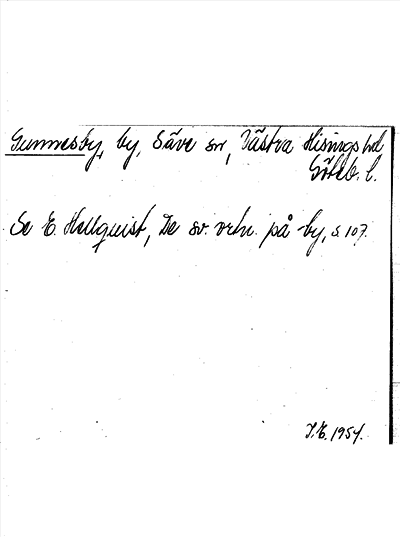 Gunnesby, by, Säve sn, Västra Hisings hd
Göteb. l.
Se E. Hellquist, De sv. ortn. på by, s. 107.
1954.